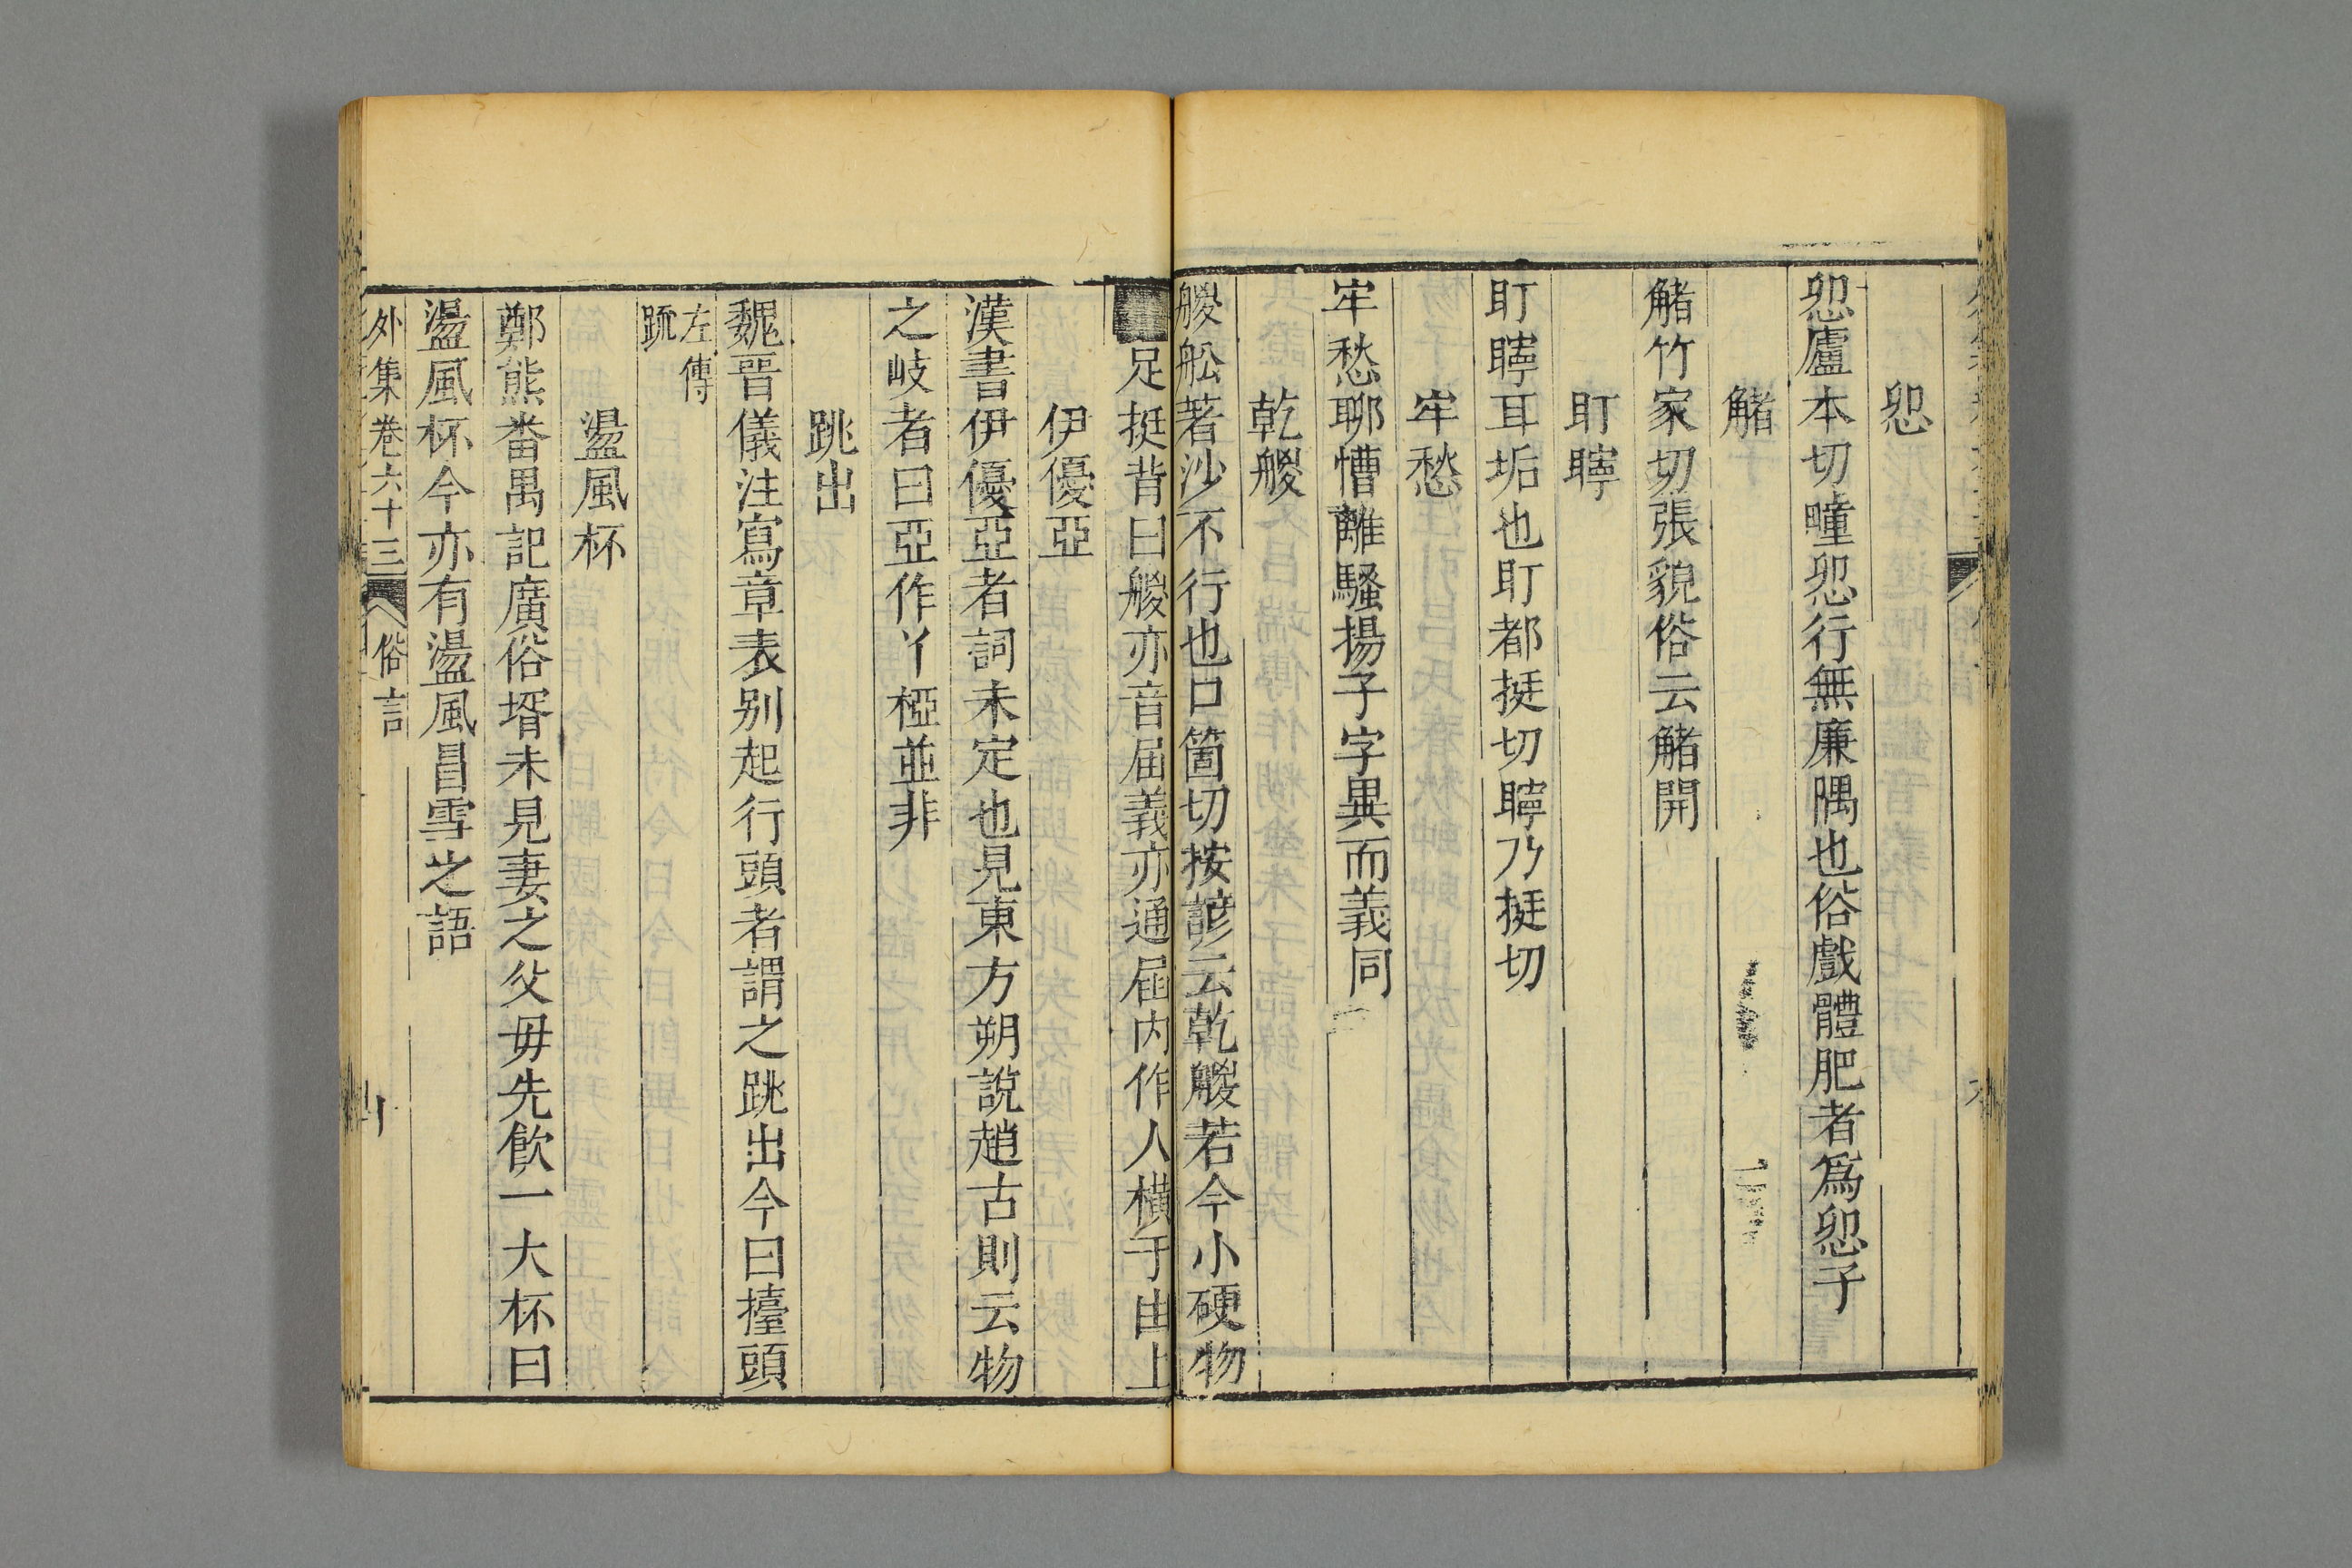 卵心
卵心廬本切瞳卵心行無廉隅也俗戲體肥者爲卵心子
觰
觰竹家切張貌俗云觰開
耵聹
耵聹耳垢也耵都挺切聹乃挺切
牢愁
牢愁聊慒離騷揚子字異而義同
乾艐
艐舩著沙不行也口箇切按諺云乾艐若今小硬物
足挺背曰艐亦音届義亦通届内作人橫于由上
伊優亞
漢書伊優亞者詞未定也見東方朔說趙古則云物
之岐者曰亞作丫椏並非
跳出
魏晉儀注寫章表别起行頭者謂之跳出今曰擡頭
左傳
䟽
盪風杯
鄭熊番禺記廣俗壻未見妻之父毋先飲一大杯曰
盪風杯今亦有盪風冒雪之語
外集卷六十三 俗言